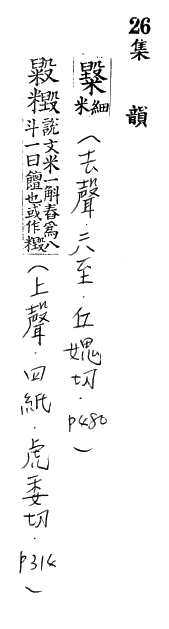 26集 韻
毇 細米（去聲．六至．丘媿切．p480）
毇 說文米一斛舂為八斗一曰饘也或作（上聲．四紙．虎委切．p314）